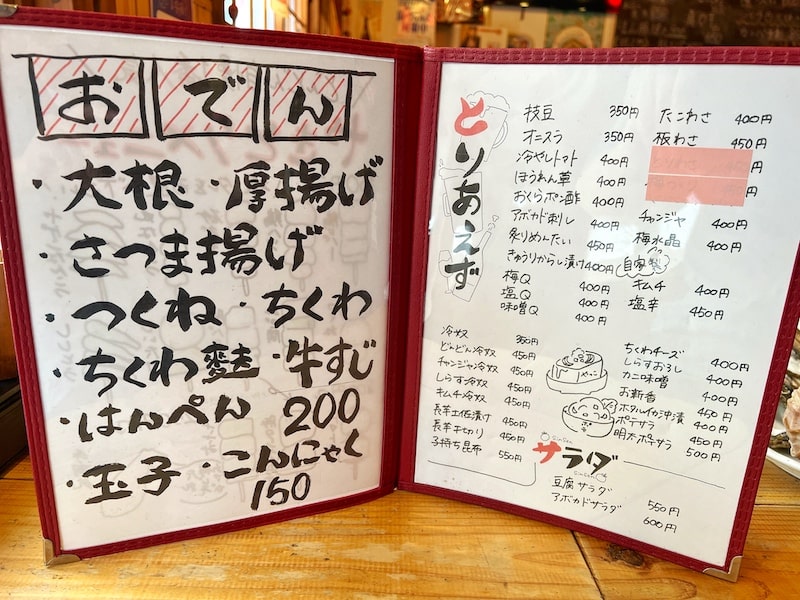 おでん
・大根・厚揚げ
・さつま揚げ
・つくね・ちくわ
・ちくわ麩・牛すじ
・はんぺん 200
・玉子・こんにゃく
150
とりあえず
枝豆 350円
オニスラ 350円
冷やしトマト 400円
ほうれん草 400円
おくらポン酢 400円
アボカド刺し 400円
炙りめんたい 450円
きゅうりからし漬け 400円
梅Q 400円
塩Q 400円
味噌Q 400円
冷奴 350円
どんどん冷奴 450円
チャンジャ冷奴 450円
しらす冷奴 450円
キムチ冷奴 450円
長芋土佐漬け 450円
長芋千切り 450円
子持ち昆布 550円
たこわさ 400円
板わさ 450円
チャンジャ 400円
梅水晶 400円
自家製
キムチ 400円
塩辛 450円
ちくわチーズ 400円
しらすおろし 400円
カニ味噌 400円
お新香 450円
ホタルイカ沖漬 400円
ポテサラ 450円
明太ポテサラ 500円
サラダ
豆腐サラダ 550円
アボカドサラダ 600円